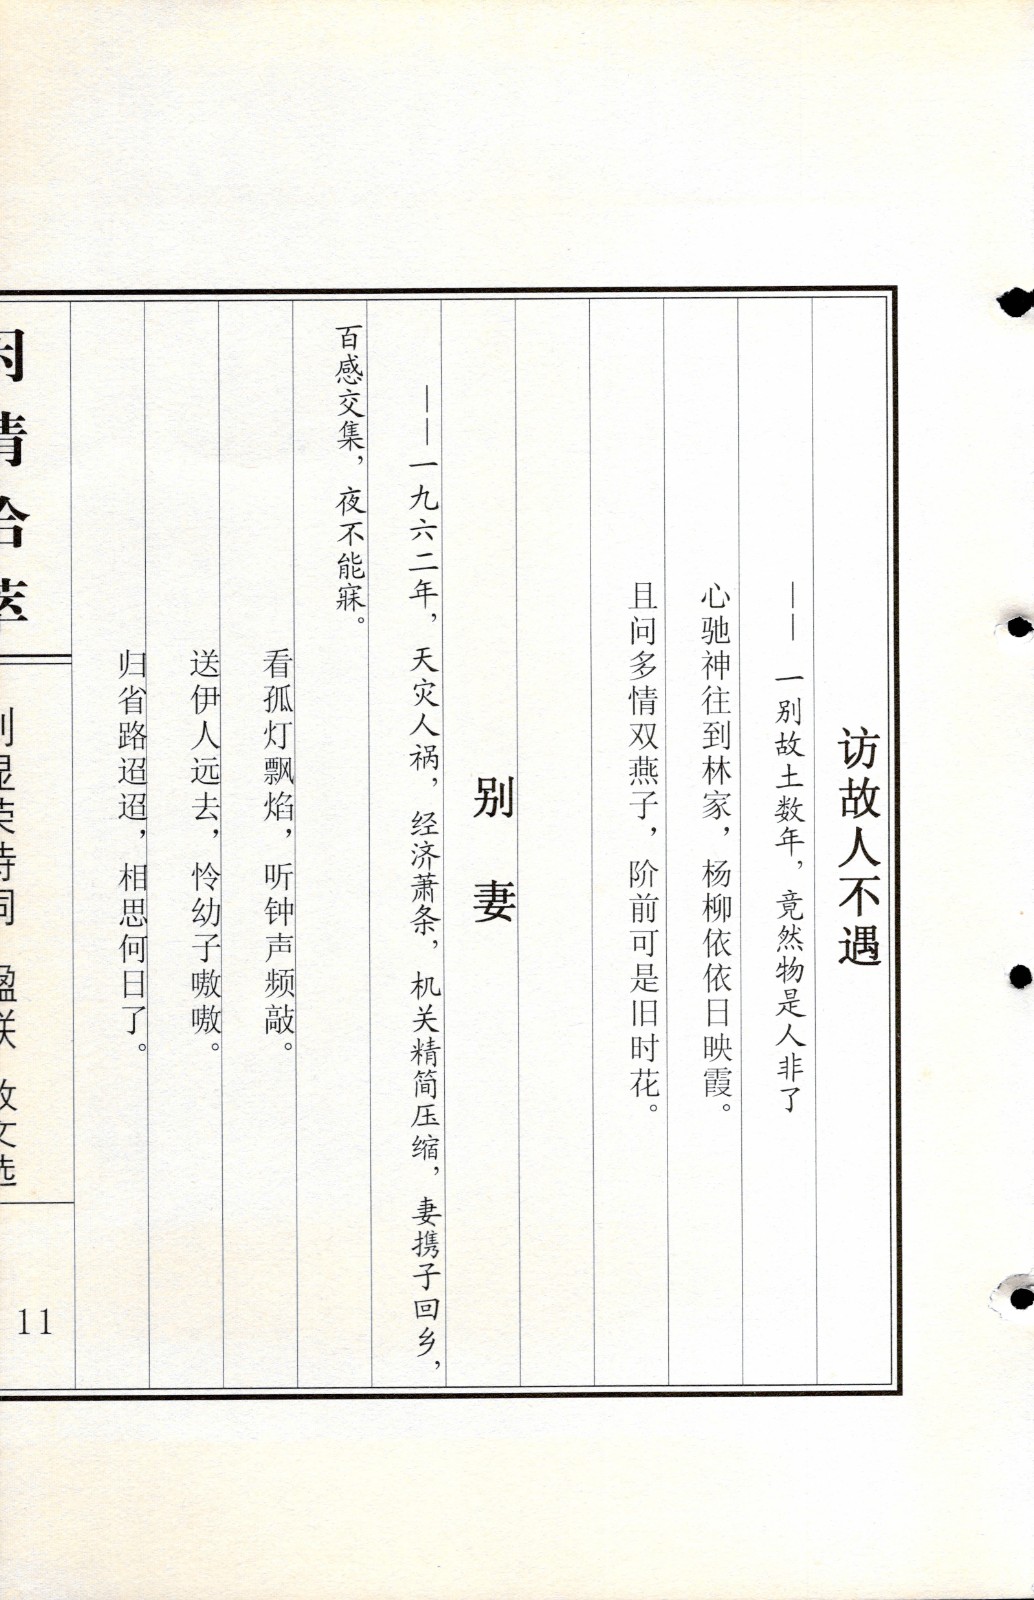 访故人不遇
—— 一别故土数年，竟然物是人非了
心驰神往到林家，杨柳依依日映霞。
且问多情双燕子，阶前可是旧时花。
别 妻
——一九六二年，天灾人祸，经济萧条，机关精简压缩，妻携子回乡，
百感交集，夜不能寐。
看孤灯飘焰，听钟声频敲。
送伊人远去，怜幼子嗷嗷。
归省路迢迢，相思何日了。
11